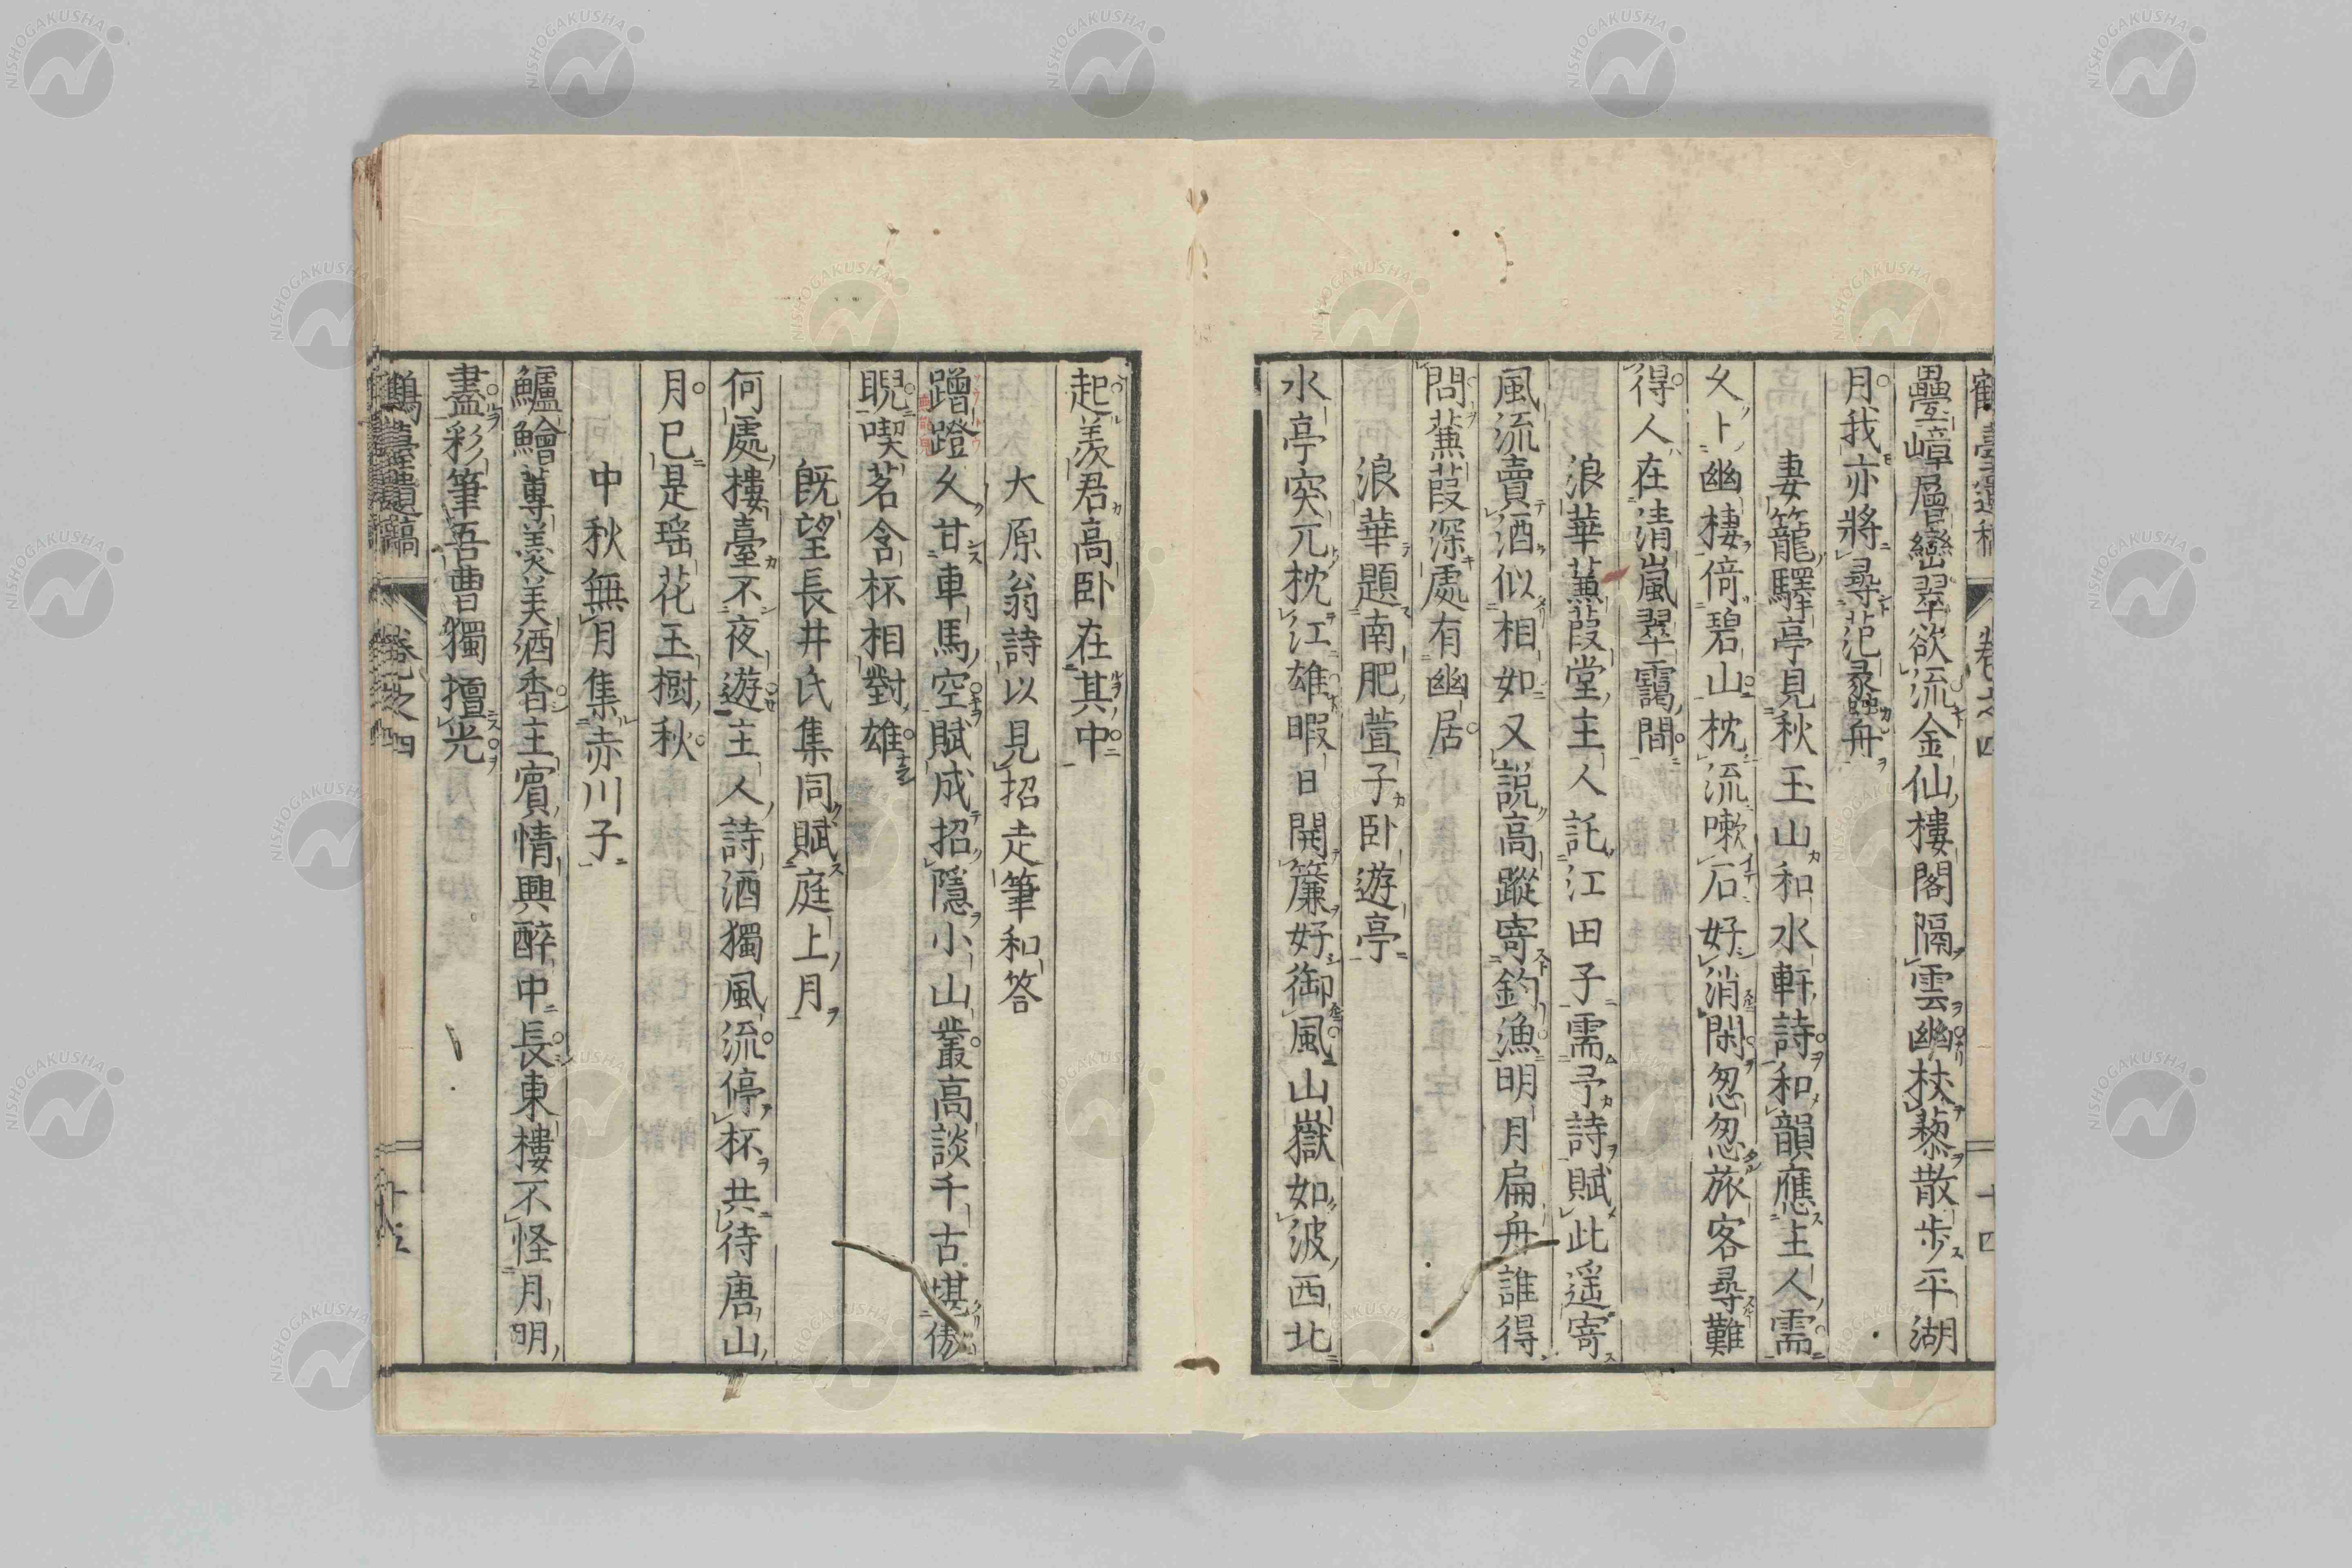 疊嶂層巒翠欲流金仙樓閣隔雲幽扶藜散步平湖
月我亦將尋范蠡舟
妻籠驛亭見秋玉山和水軒詩和韻應主人需
久卜幽棲倚碧山枕流嗽石好消閑忽忽旅客尋難
得人在清嵐翠靄間
浪華蒹葭堂主人託江田子需予詩賦此遥寄
風流賣酒似相如又説高蹤寄釣漁明月扁舟誰得
問蒹葭深處有幽居
浪華題南肥萱子卧遊亭
水亭突兀枕江雄暇日開簾好御風山嶽如波西北
起羨君高卧在其中
大原翁詩以見招走筆和答
蹭蹬久甘車馬空賦成招隱小山叢高談千古堪傲
睨喫茗含杯相對雄
既望長井氏集同賦庭上月
何處樓臺不夜遊主人詩酒獨風流停杯共待唐山
月已是瑶花玉樹秋
中秋無月集赤川子
鱸鱠蓴羮美酒香主賓情興醉中長東樓不怪月明
盡彩筆吾曹獨擅光
鶴臺遺稿 卷之四
NISHOGAKUSHA